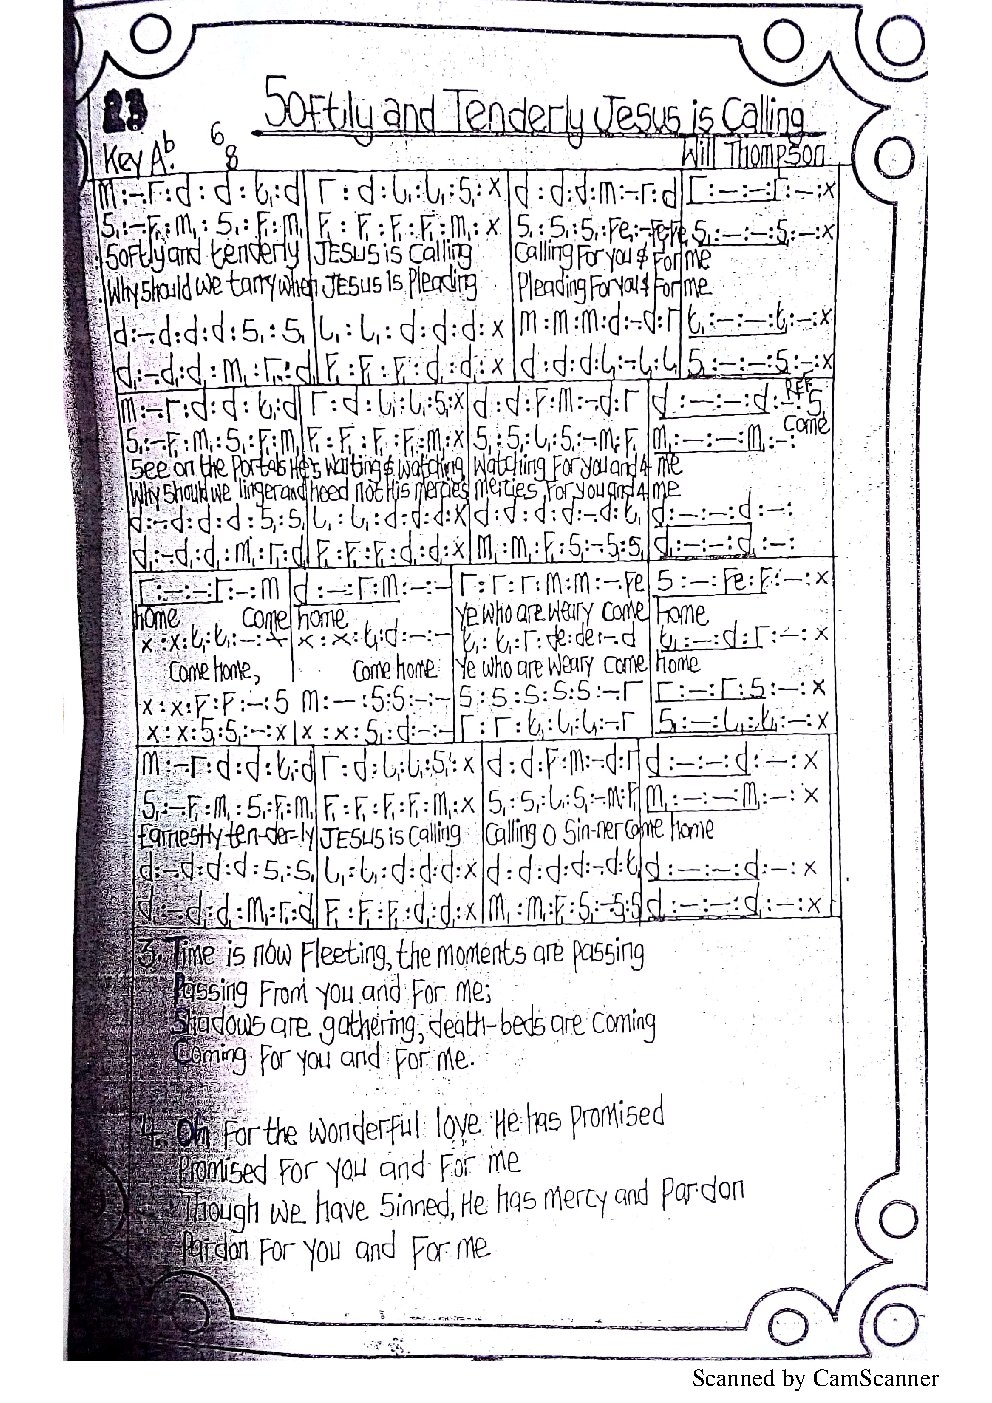 23
Softly and Tenderly Jesus is Calling
Key Ab. 6/8
Will Thompson
m:-.r:d:d:t,:d | r:d:l,:l,:s,:x | d:d:d:m:-.r:d | r:-:-:r:-:x
s,:-.f,:m,:s,:f,:m, | f,:f,:f,:f,:m,:x | s,:s,:s,:fe,:-.fe,:fe, | s,:-:-:s,:-:x
Softly and tenderly JESUS is calling Calling For you & For me
Why should we tarry when JESUS is Pleading Pleading For you & For me
d:-.d:d:d:s,:s, | l,:l,:d:d:d:x | m:m:m:d:-.d:r | t,:-:-:t,:-:x
d,:-.d,:d,:m,:r,:d, | f,:f,:f,:d,:d,:x | d:d:d:l,:-.l,:l, | s,:-:-:s,:-:x
REF
m:-.r:d:d:t,:d | r:d:l,:l,:s,:x | d:d:f:m:-.d:r | d:-:-:d:-:s,
Come
s,:-.f,:m,:s,:f,:m, | f,:f,:f,:f,:m,:x | s,:s,:l,:s,:-.m,:f, | m,:-:-:m,:-:
See on the Portals He's waiting & watching, Watching For you and 4 me
Why should we linger and heed not His mercies mercies For you and 4 me
d:-.d:d:d:s,:s, | l,:l,:d:d:d:x | d:d:d:d:-.d:t, | d:-:-:d:-:
d,:-.d,:d,:m,:r,:d, | f,:f,:f,:d,:d,:x | m,:m,:f,:s,:-.s,:s, | d,:-:-:d,:-:
r:-:-:r:-:m | d:-:r:m:-:- | r:r:r:m:m:-.fe | s:-:fe:f:-:x
home Come home Ye who are weary come Home
x:x:t,:t,:-:x | x:x:t,:d:-:- | t,:t,:r:de:de:-.d | t,:-:d:r:-:x
Come home, Come home Ye who are weary come home
x:x:f:f:-:s | m:-:s:s:-:- | s:s:s:s:s:-.r | r:-:r:s:-:x
x:x:s,:s,:-:x | x:x:s,:d:-:- | r:r:t,:l,:l,:-.r | s,:-:l,:t,:-:x
m:-.r:d:d:t,:d | r:d:l,:l,:s,:x | d:d:f:m:-.d:r | d:-:-:d:-:x
s,:-.f,:m,:s,:f,:m, | f,:f,:f,:f,:m,:x | s,:s,:l,:s,:-.m,:f, | m,:-:-:m,:-:x
Earnestly ten-der-ly JESUS is calling Calling O Sin-ner come home
d:-.d:d:d:s,:s, | l,:l,:d:d:d:x | d:d:d:d:-.d:t, | d:-:-:d:-:x
d,:-.d,:d,:m,:r,:d, | f,:f,:f,:d,:d,:x | m,:m,:f,:s,:-.s,:s, | d,:-:-:d,:-:x
3. Time is now Fleeting, the moments are passing
Passing From you and For me;
Shadows are gathering, death-beds are coming
Coming For you and For me.
4. Oh For the wonderful love He has promised
Promised For you and For me
Though we have sinned, He has mercy and pardon
Pardon For you and For me
Scanned by CamScanner